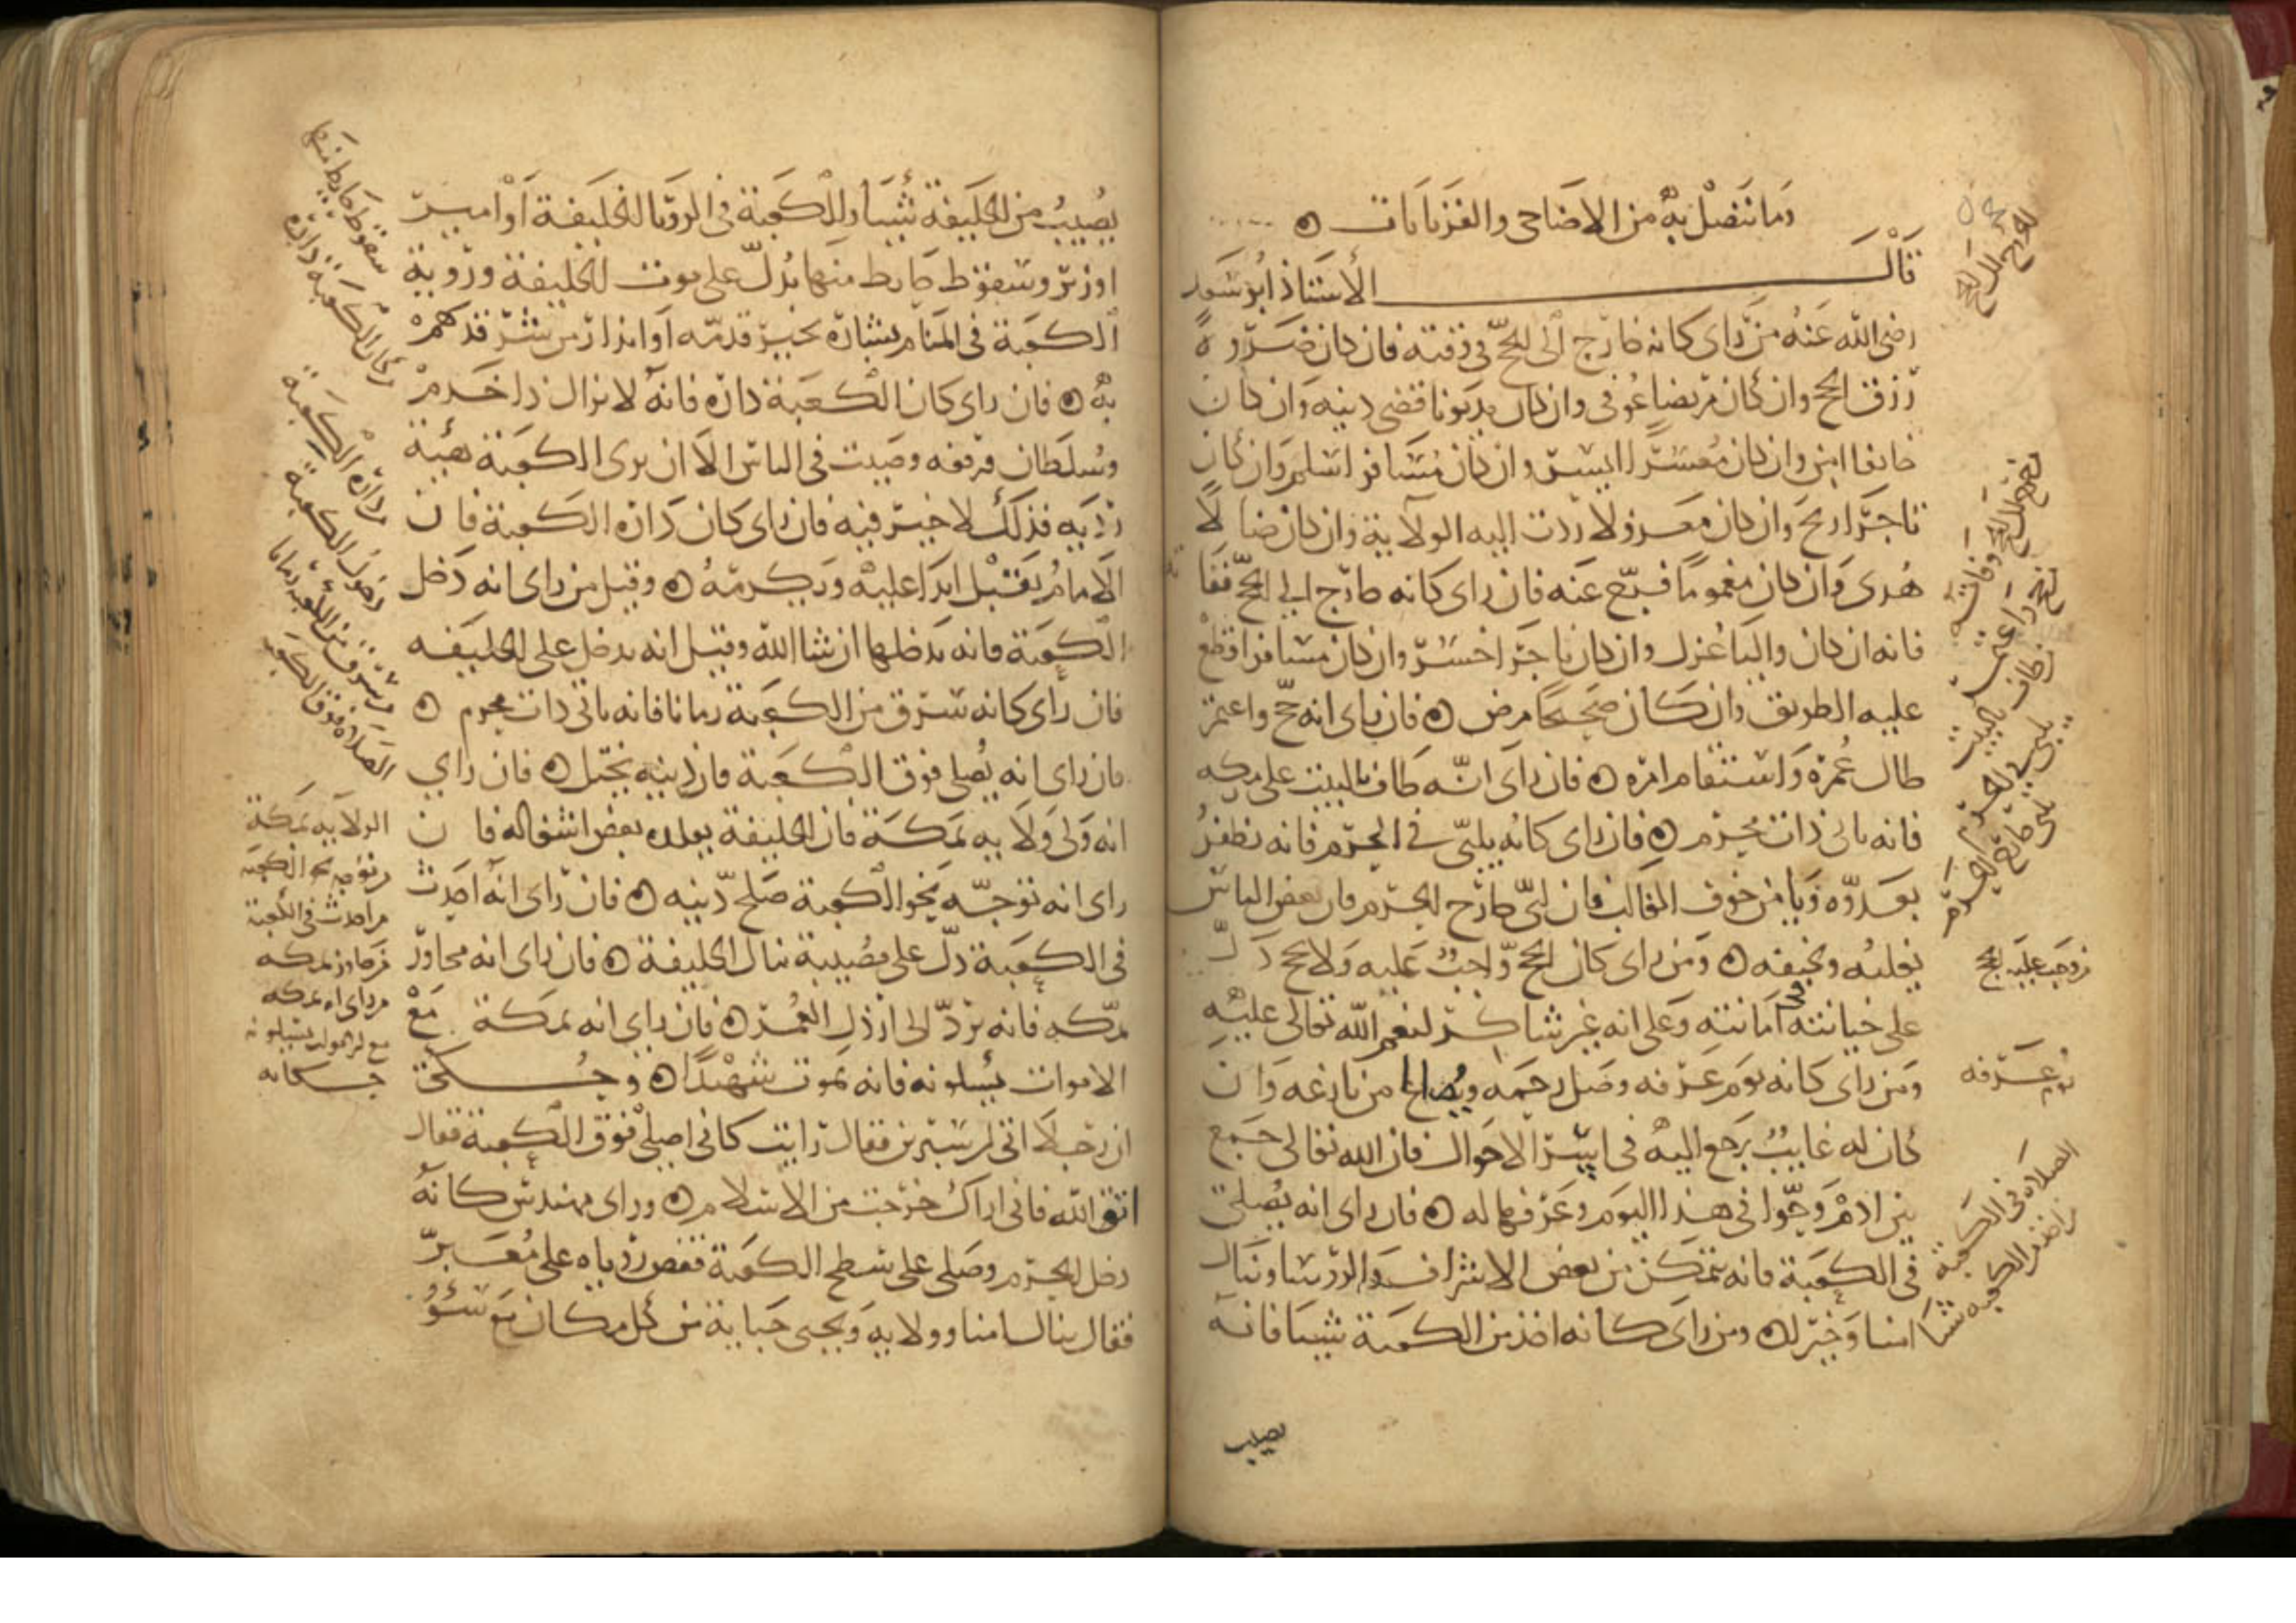 وما يتصل به من الاضاحي والقربانات
قال الاستاذ ابو سعد
رضي الله عنه من راى كانه خارج الى الحج في وقته فان كان ضرورة
رزق الحج وان كان مريضا عوفى وان كان مديونا قضى دينه وان كان
خائفا امن وان كان معسرا ايسر وان كان مسافر اسلم وان كان
تاجرا ربح وان كان معزولا ردت اليه الولاية وان كان ضالا
هدى وان كان مغموما فرج عنه فان راى كانه خارج الى الحج ففاته
فانه ان كان واليا عزل وان كان تاجرا خسر وان كان مسافرا قطع
عليه الطريق وان كان صحيحا مرض فان راى انه حج واعتمر
طال عمره واستقام امره فان راى انه طاف بالبيت على مكه
فانه ياتى ذات محرم فان راى كانه يلبي في الحرم فانه يظفر
بعدوه ويامن خوف الغالب فان لبى خارج الحرم فان بعض الناس
يغلبه ويخيفه ومن راى كان الحج واجب عليه ولا يحج دل
على خيانته امانته وعلى انه غير شاكر لنعم الله تعالى عليه
ومن راى كانه يوم عرفه وصل رحمه ويصالح من نازعه وان
كان له غايب يرجع اليه في ايسر الاحوال فان الله تعالى جمع
بين ادم وحوا في هذا اليوم وعرفها له فان راى انه يصلي
في الكعبة فانه يتمكن من بعض الاشراف والروسا وينال
امنا وخيرا ومن راى كانه اخذ من الكعبة شيئا فانه
يصيب
يوم عرفه
من وجب عليه الحج
الصلاة في الكعبة
من اخذ من الكعبه شيا
يصيب من الخليفة شيئا والكعبة في الرويا الخليفة او امير
او وزير وسقوط حايط منها يدل على موت الخليفة وروية
الكعبة في المنام بشارة بخير قدمه او انذار من شر قد هم
به فان راى كان الكعبة داره فانه لا يزال ذا خدم
وسلطان ورفعه وصيت في الناس الا ان يرى الكعبة هيئة
رديه فذلك لا خير فيه فان راى كان داره الكعبة فان
الامام يقبل ابدا عليه ويكرمه وقيل من راى انه دخل
الكعبة فانه يدخلها ان شا الله وقيل انه يدخل على الخليفه
فان راى كانه سرق من الكعبة رمانا فانه ياتي ذات محرم
فان راى انه يصلي فوق الكعبة فان دينه يختل فان راي
انه ولى ولايه بمكة فان الخليفة يقلده بعض اشغاله فان
راى انه توجه نحو الكعبة صلح دينه فان راى انه احدث
في الكعبة دل على مصيبة تنال الخليفة فان راى انه مجاور
بمكه فانه يرد الى ارذل العمر فان راي انه بمكة مع
الاموات يسلونه فانه يموت شهيدا وحكى
ان رجلا اتى ابن سيرين فقال رايت كاني اصلي فوق الكعبة فقال
اتق الله فاني اراك خرجت من الاسلام وراى مهندس كانه
دخل الحرم وصلى على سطح الكعبة فقص روياه على معبر
فقال ينال امنا وولايه ويجبى جباية من كل مكان مع سو
سقوط حايط منها
كان الكعبة داره
داره الكعبة
دخول الكعبة
من سرق من الكعبة رمانا
الصلاة فوق الكعبة
الولايه بمكة
من توجه نحو الكعبه
من احدث في الكعبة
من جاور بمكه
من راى انه بمكه
مع الاموات يسلونه
حكايه